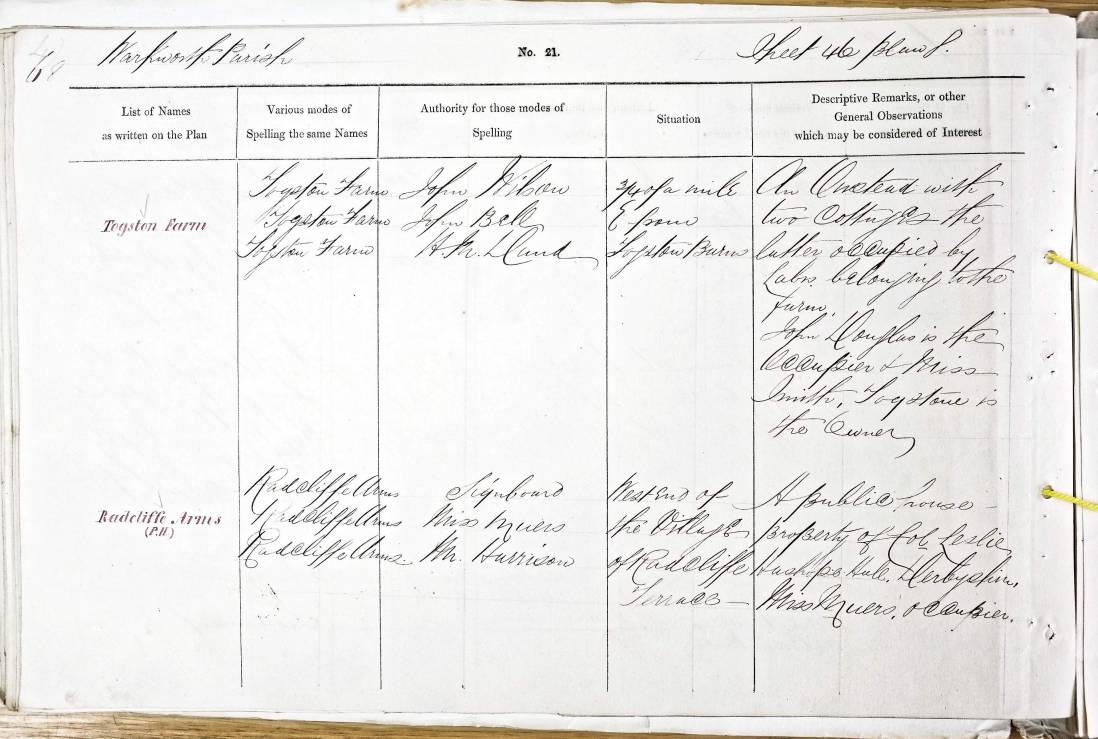 68
Warkworth Parish
No. 21.
Sheet 46 plan 8.
List of Names
as written on the Plan
Various modes of
Spelling the same Names
Authority for those modes of
Spelling
Situation
Descriptive Remarks, or other
General Observations
which may be considered of Interest
Togston Farm
Togston Farm
Togston Farm
Togston Farm
John Wilson
John Bell
3/4 of a mile
E from
Togston Barns
An Onstead with
two Cottages the
latter occupied by
Labs. belonging to the
Farm.
John Douglas is the
Occupier & Miss
Smith, Togstone is
the Owner
Radcliffe Arms
(P.H)
Radcliffe Arms
Radcliffe Arms
Radcliffe Arms
Signboard
Miss Muers
Mr. Harrison
West End of
the Village
of Radcliffe
Terrace
A public house
property of Col. Leslie
Hall, Derbyshire,
Miss Muers, occupier.